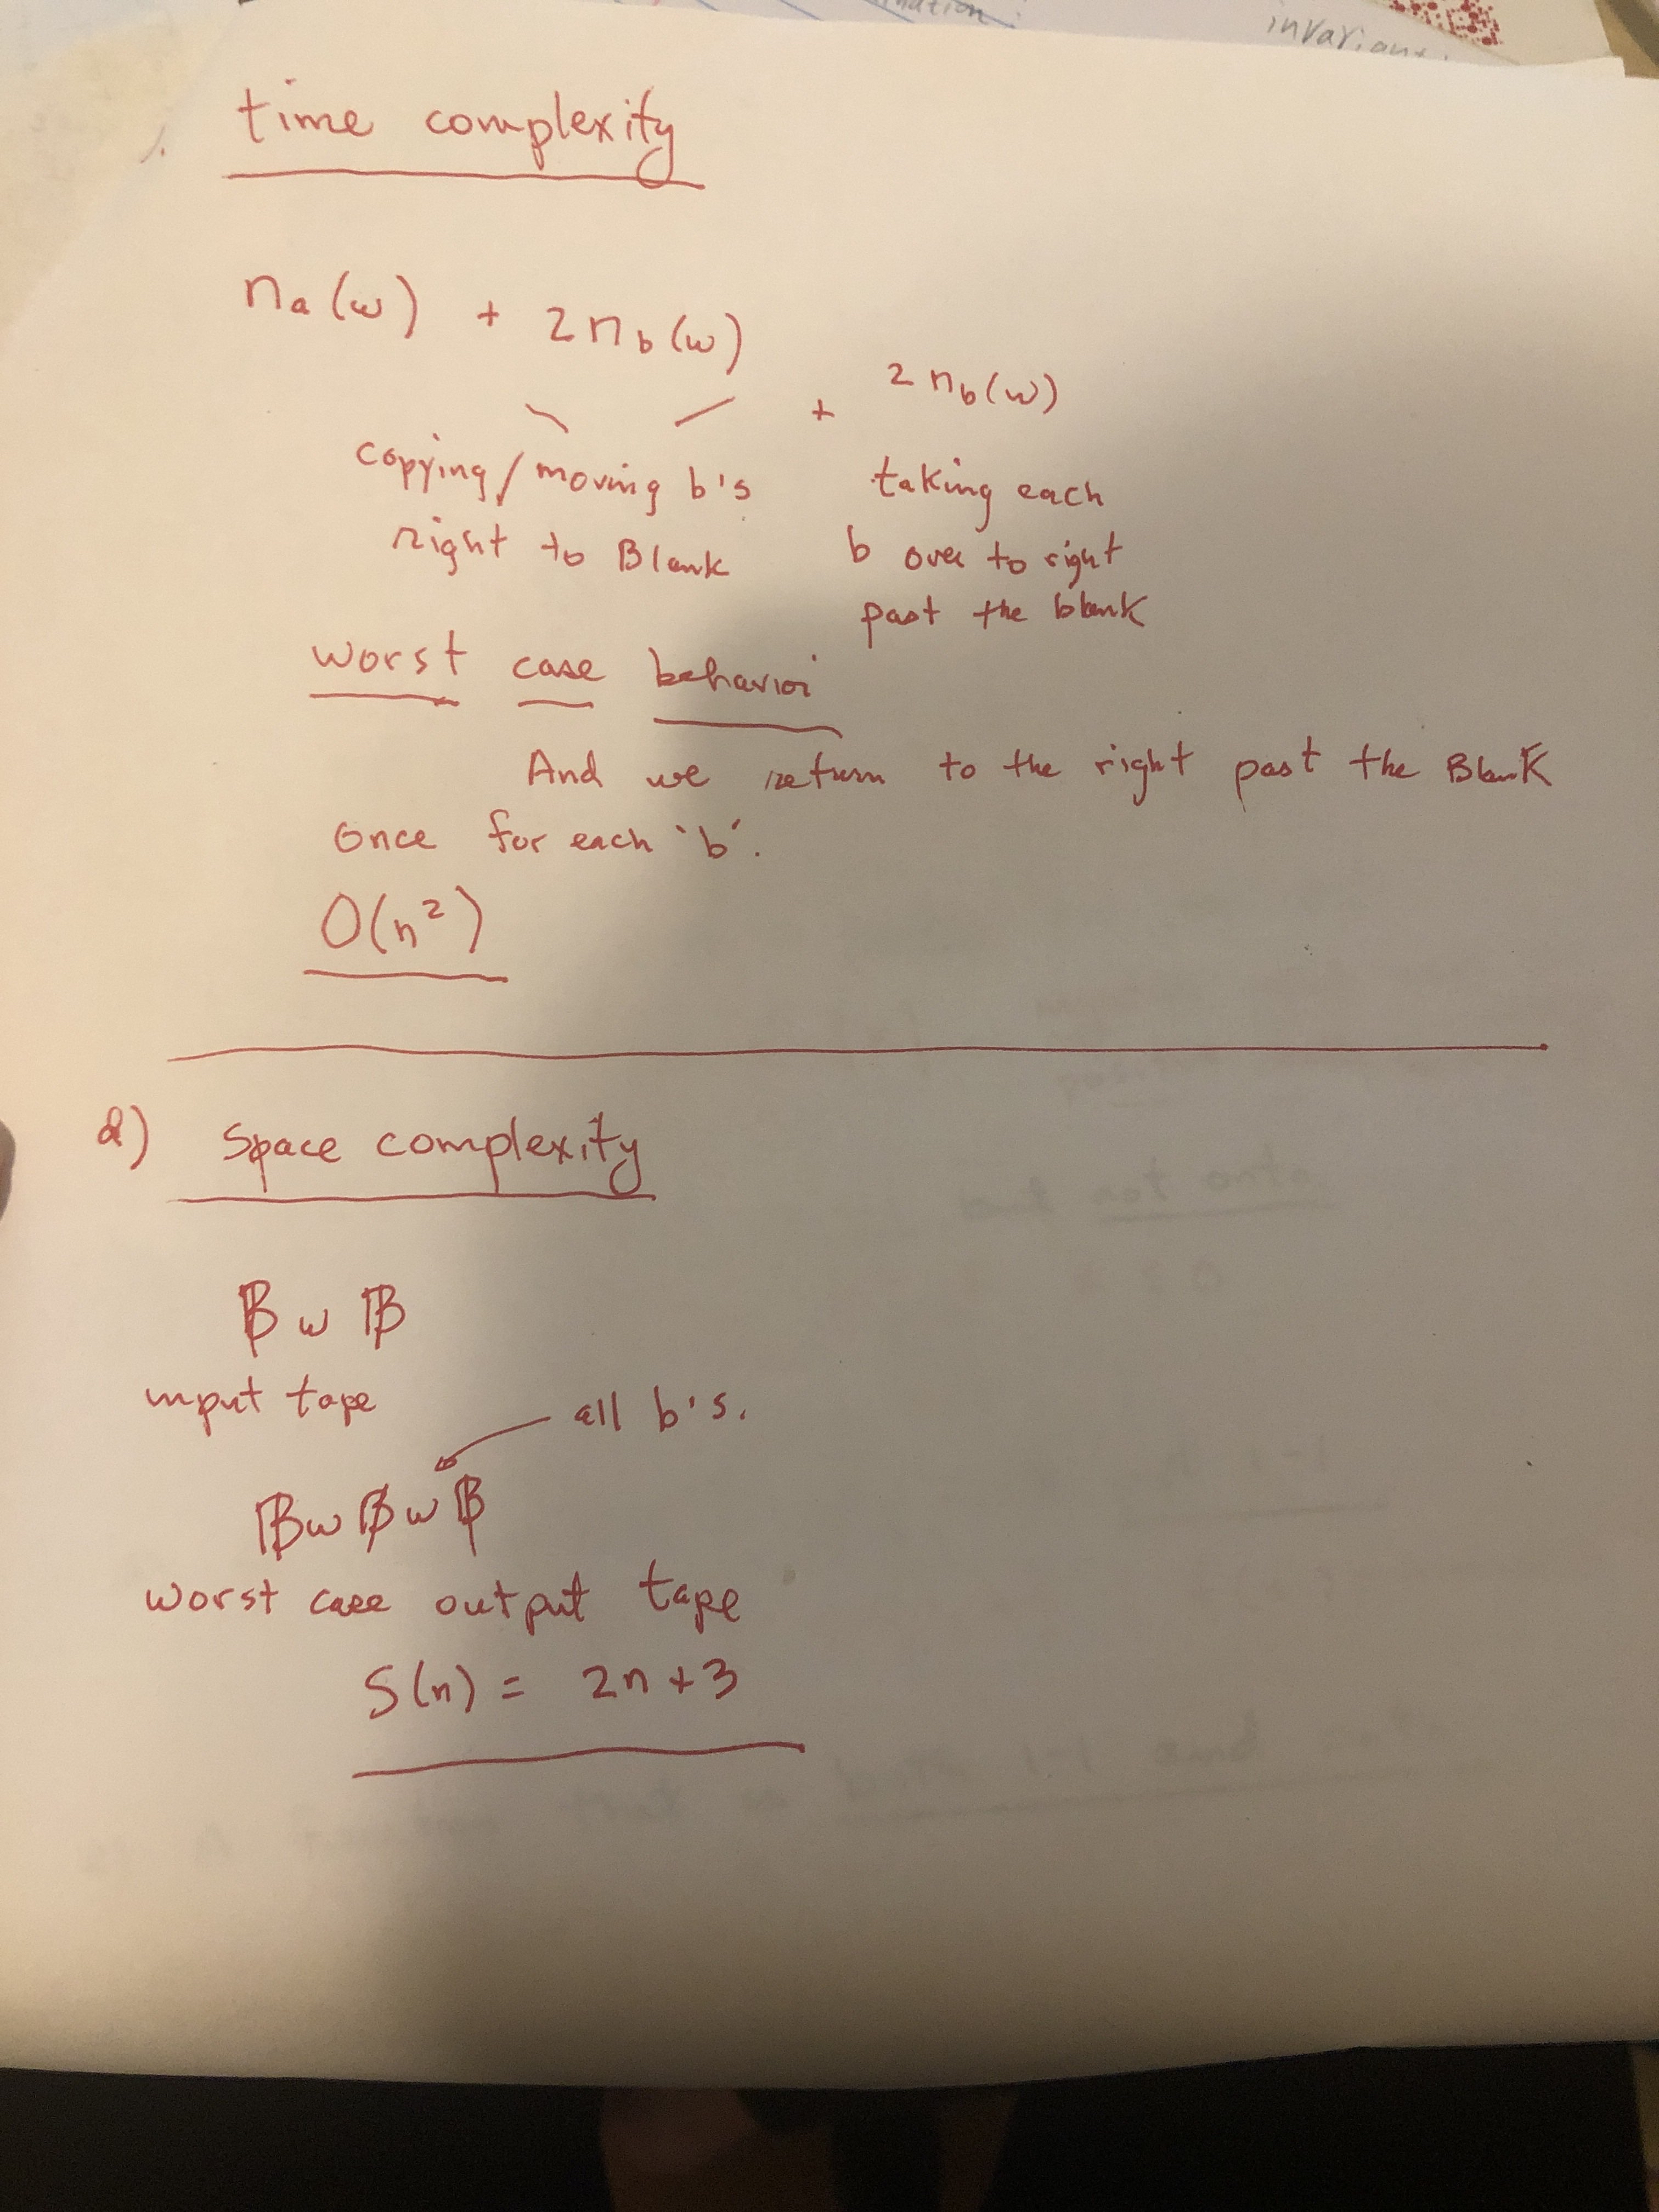 invarian
time complexity
nₐ(w) + 2n_b(w)
+ 2 n_b(w)
copying/moving b's
right to Blank
taking each
b over to right
past the blank
worst case behavior
And we return to the right past the Blank
once for each 'b'.
O(n²)
d) Space complexity
B w B
input tape
all b's.
B w B w B
worst case output tape
S(n) = 2n+3